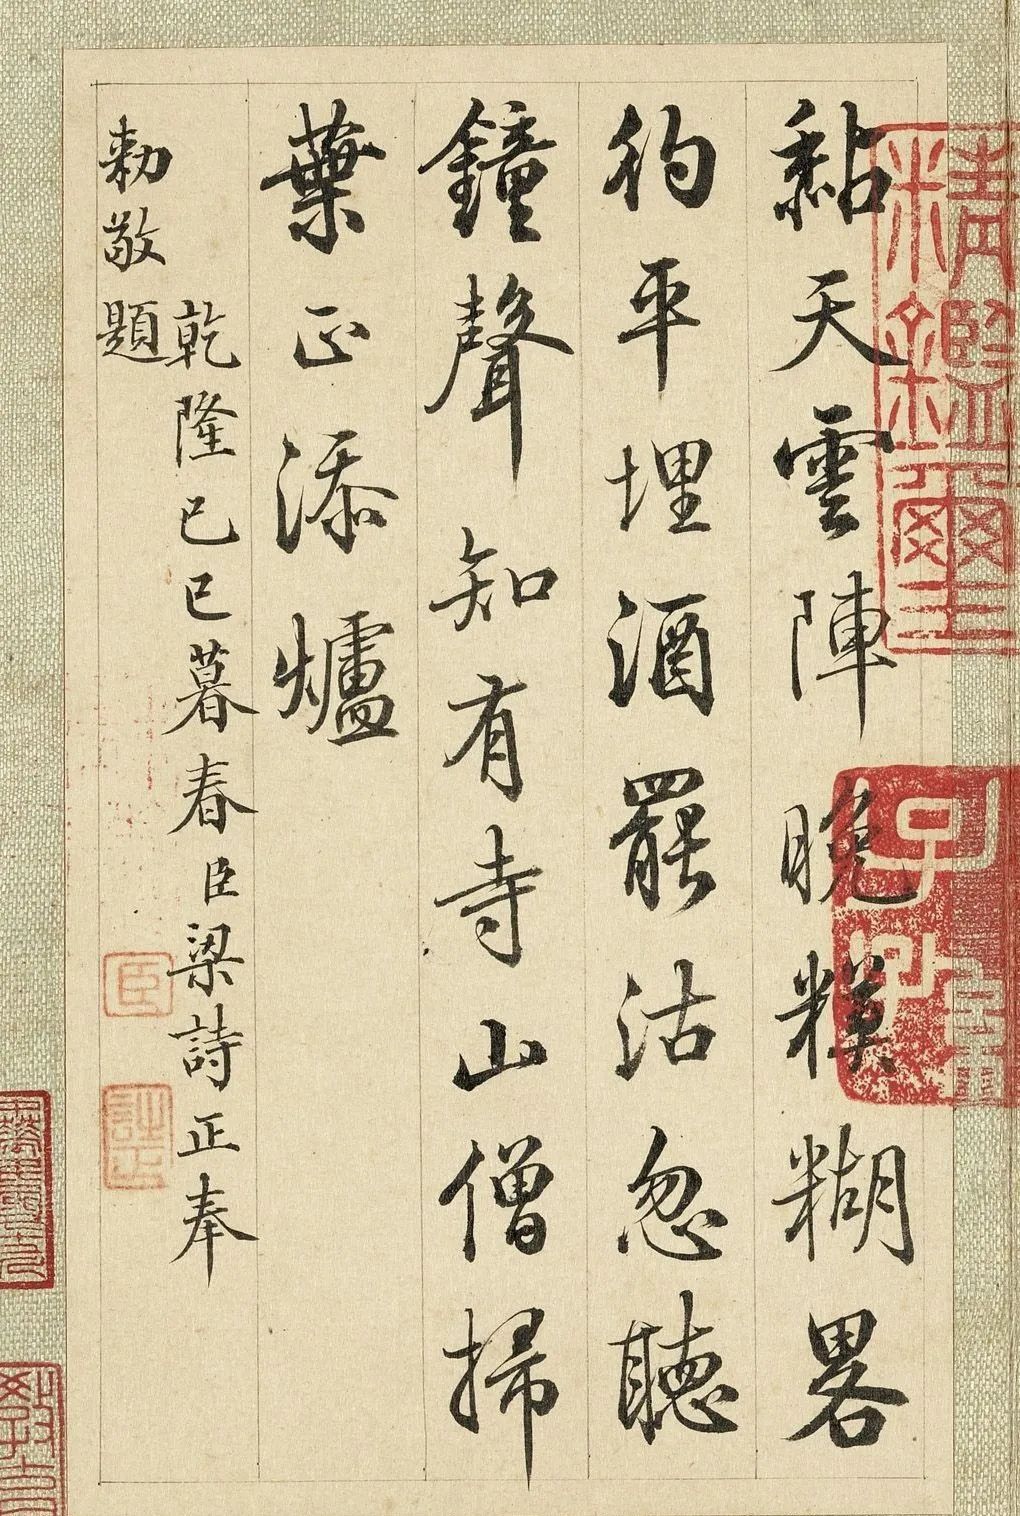 黏天雲陣晚糢糊畧
彴平埋酒罷沽忽聽
鐘聲知有寺山僧掃
葉正添爐
乾隆己巳暮春臣梁詩正奉
勅敬題
臣
詩正